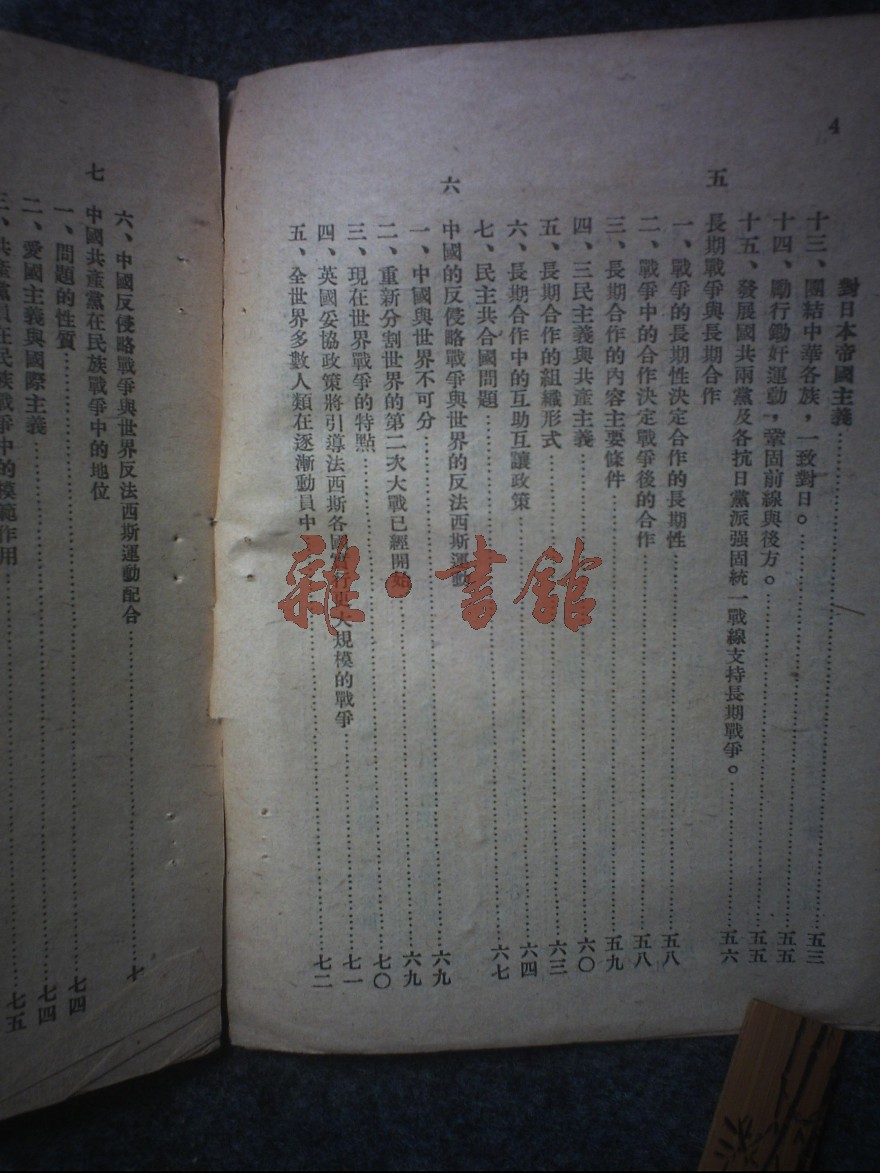 4
對日本帝國主義……五三
十三、團結中華各族，一致對日。……五五
十四、勵行鋤奸運動，鞏固前線與後方。……五五
十五、發展國共兩黨及各抗日黨派强固統一戰線支持長期戰爭。……五六
五 長期戰爭與長期合作
一、戰爭的長期性決定合作的長期性……五八
二、戰爭中的合作決定戰爭後的合作……五八
三、長期合作的內容主要條件……五九
四、三民主義與共產主義……六〇
五、長期合作的組織形式……六三
六、長期合作中的互助互讓政策……六四
七、民主共合國問題……六七
六 中國的反侵略戰爭與世界的反法西斯運動
一、中國與世界不可分……六九
二、重新分割世界的第二次大戰已經開始……六九
三、現在世界戰爭的特點……七〇
四、英國妥協政策將引導法西斯各國實行更大規模的戰爭……七一
五、全世界多數人類在逐漸動員中……七二
六、中國反侵略戰爭與世界反法西斯運動配合……
七 中國共產黨在民族戰爭中的地位
一、問題的性質……七四
二、愛國主義與國際主義……七四
三、共產黨員在民族戰爭中的模範作用……七五
雜·書館